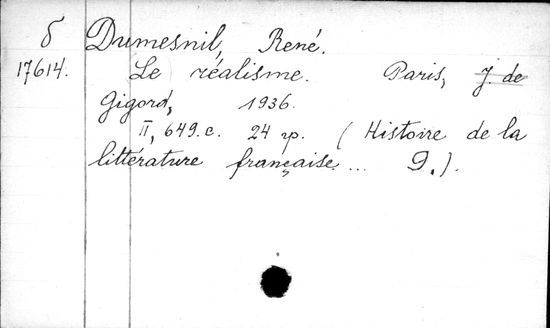 б Dumesnil, René.
17614. Le réalisme. Paris, J. de
Gigord, 1936.
II, 649.c. 24 гр. (Histoire de la
littérature française... 9.).